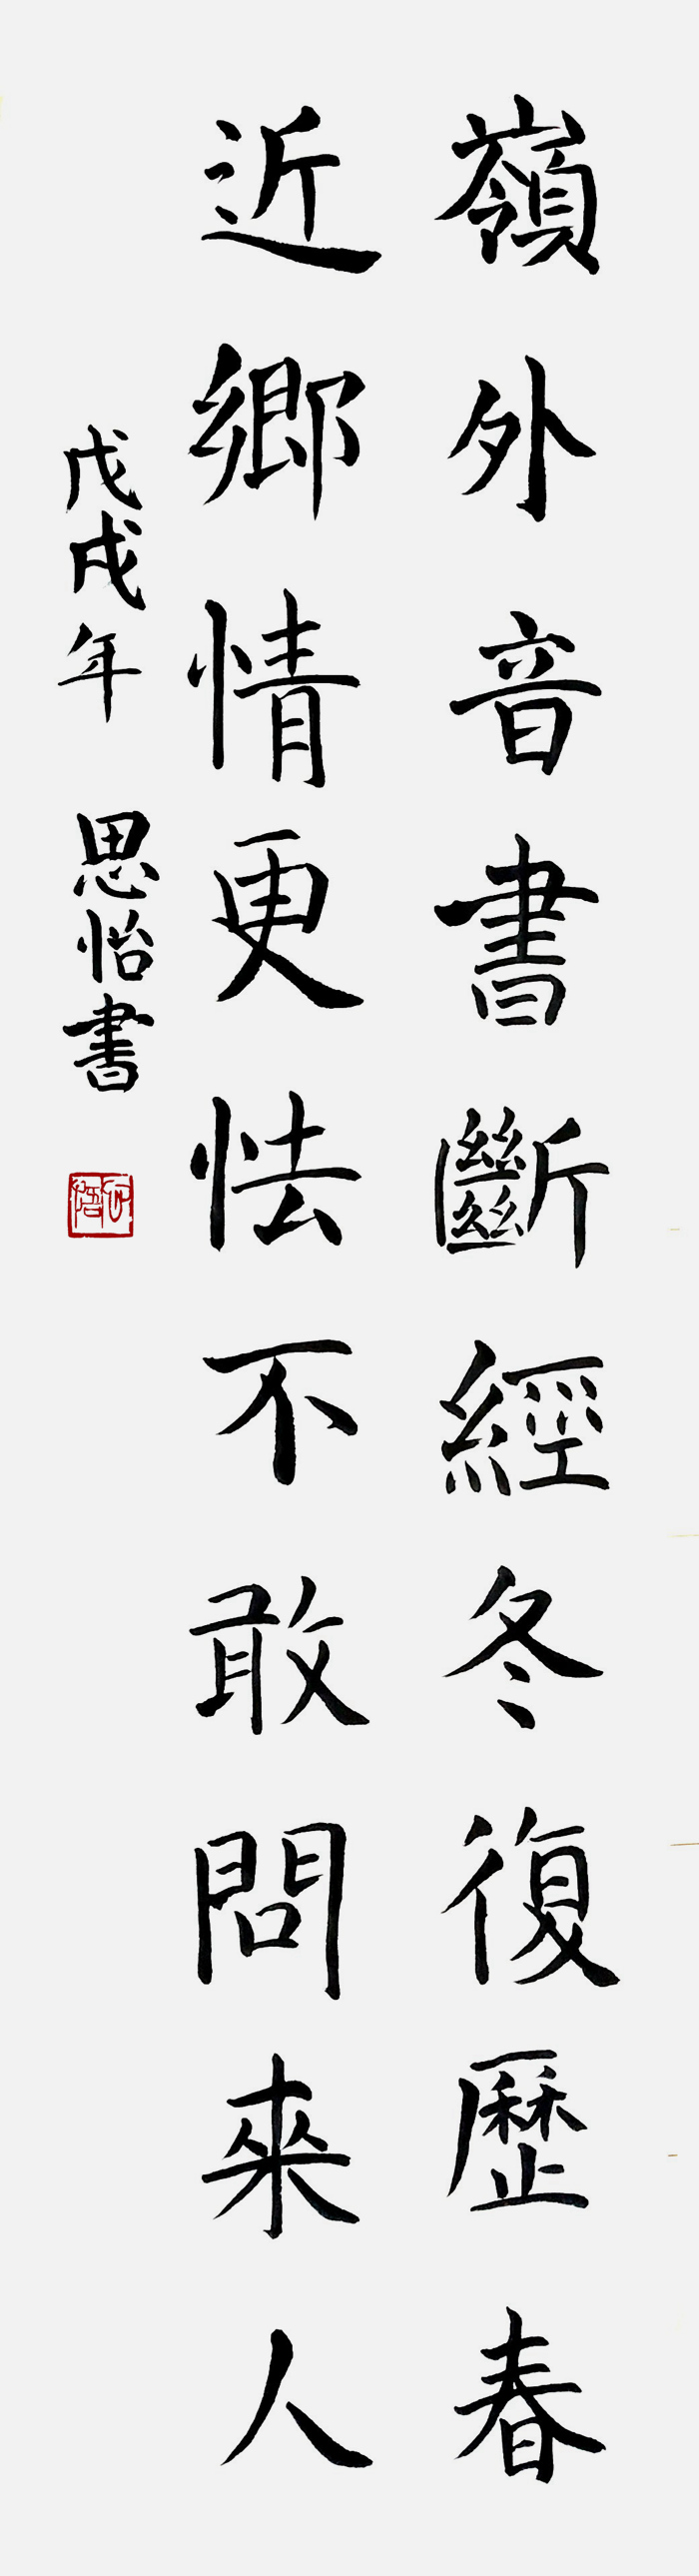 嶺外音書斷經冬復歷春
近鄉情更怯不敢問來人
戊戌年 思怡書